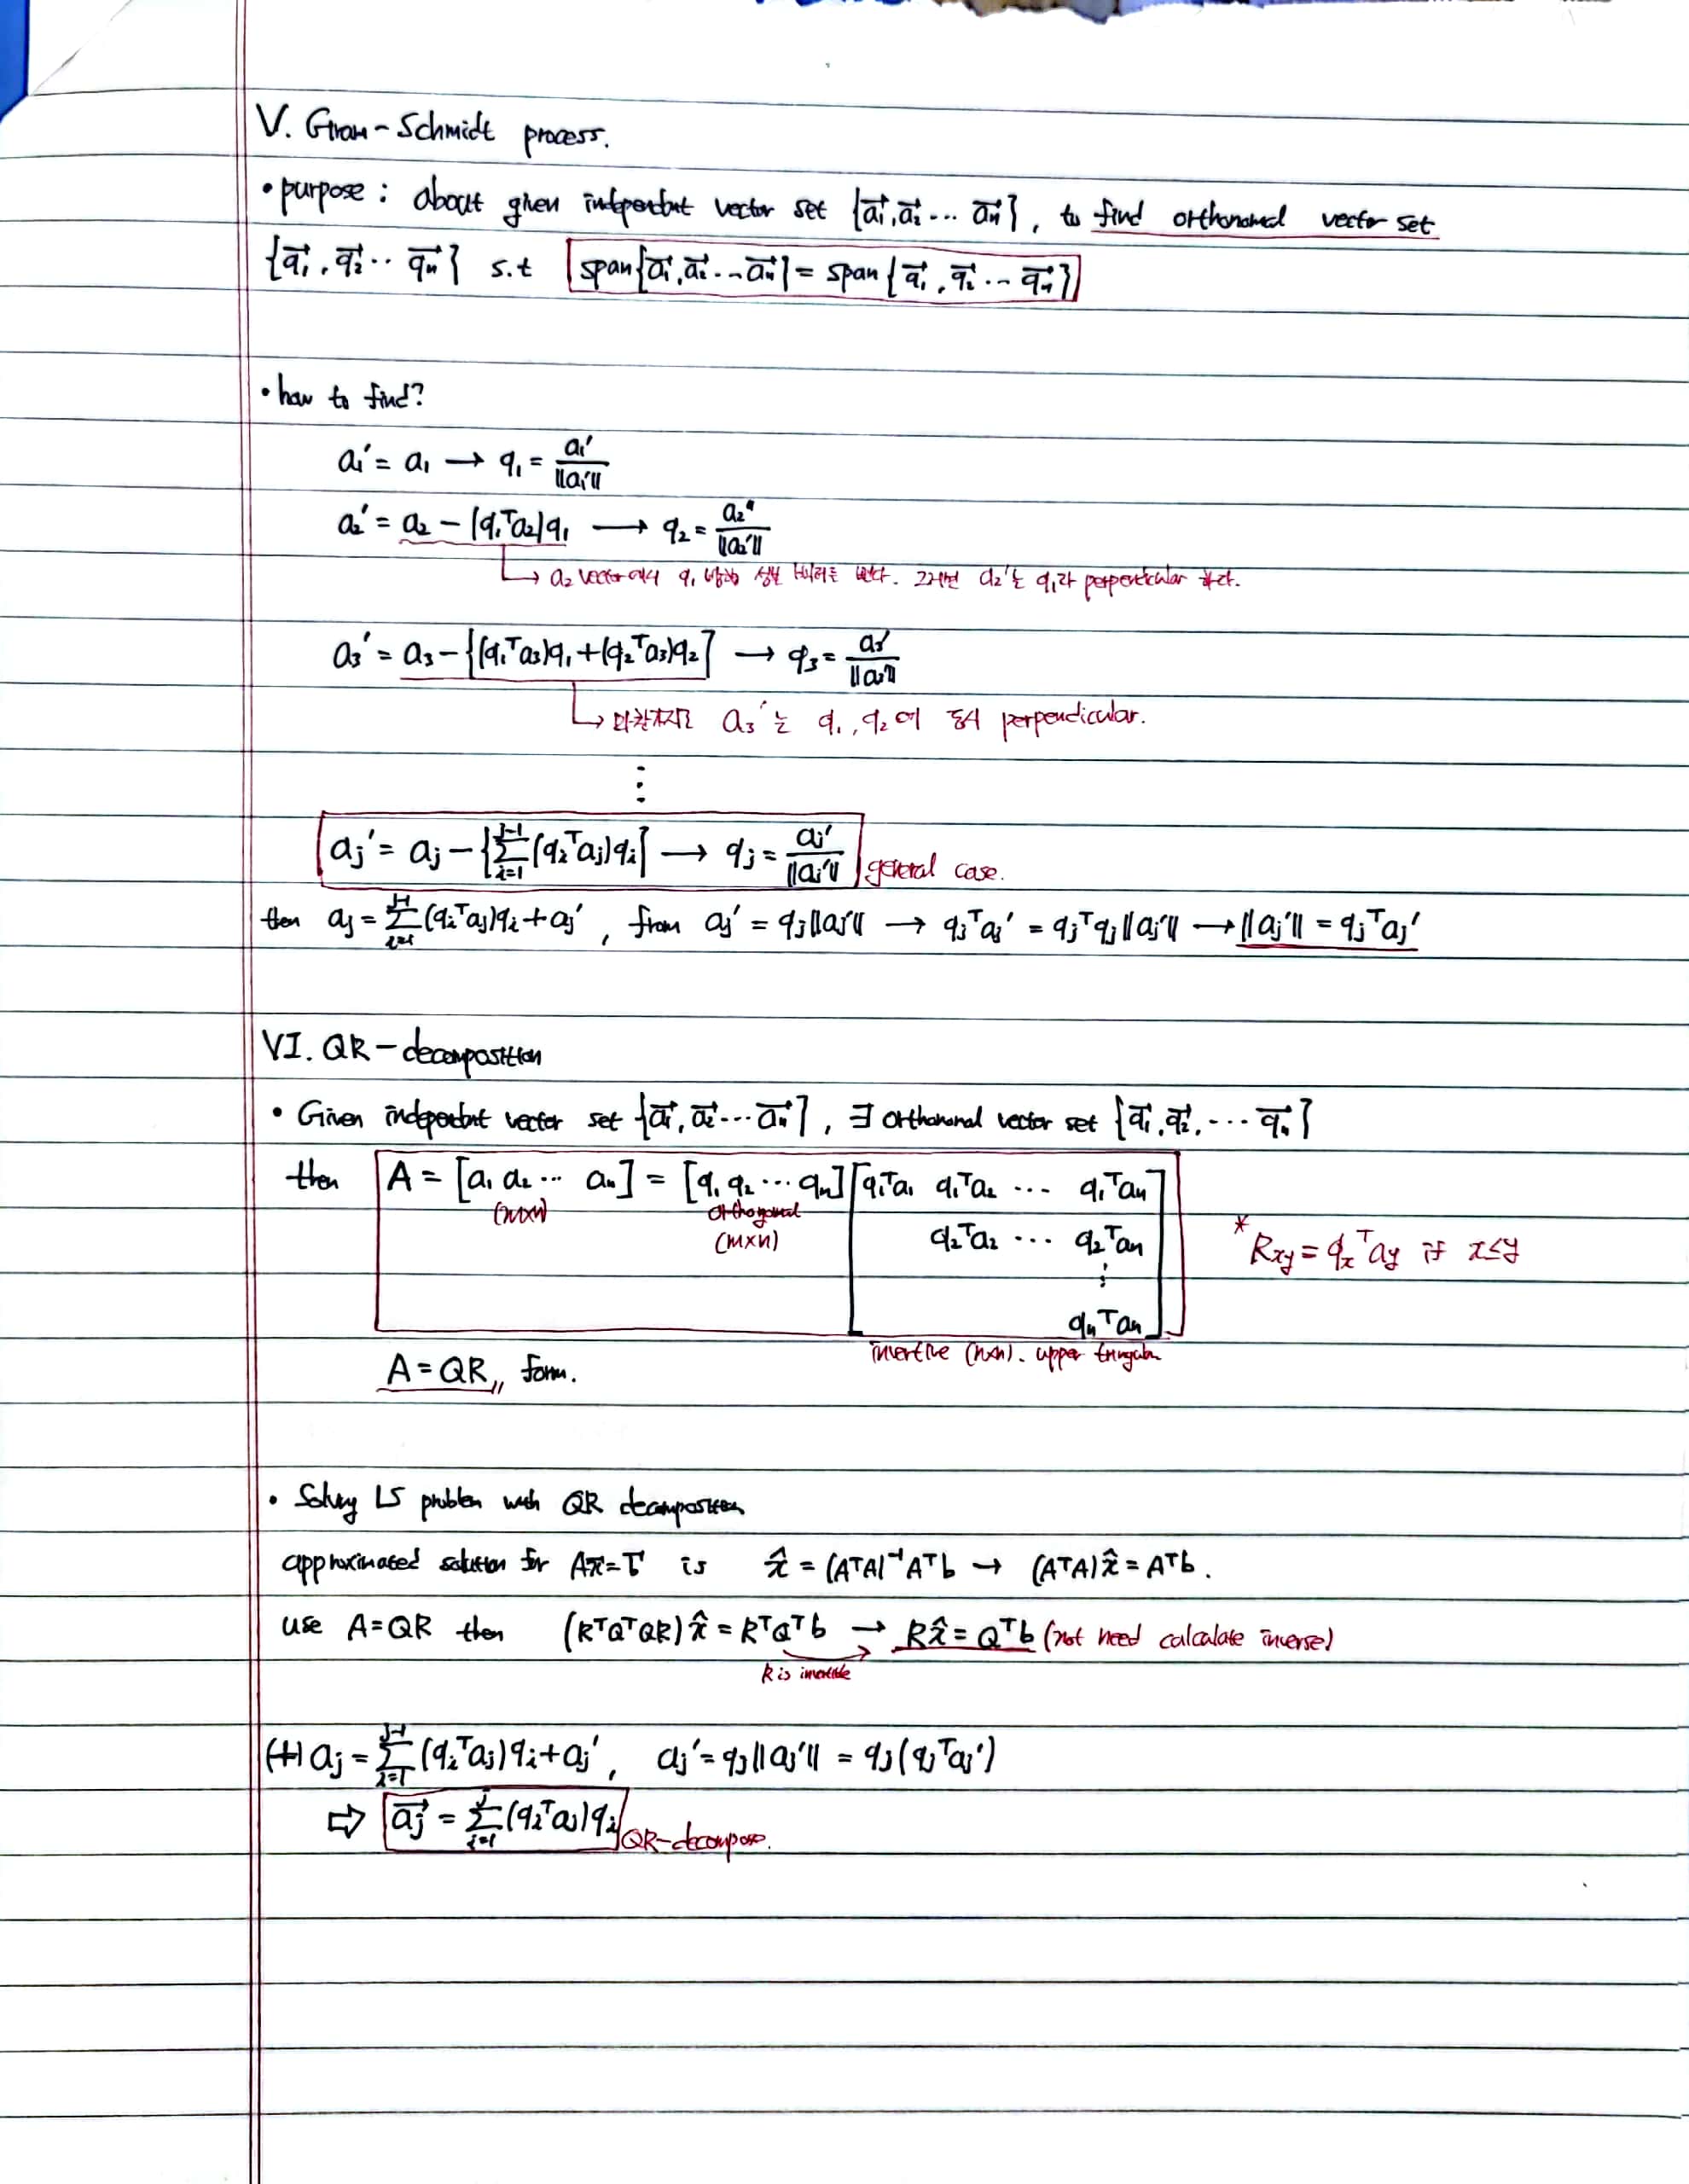 V. Gram-Schmidt process.
• purpose : about given independent vector set {a₁⃗, a₂⃗ ... aₙ⃗}, to find orthonormal vector set
{q₁⃗, q₂⃗ ·· qₙ⃗} s.t span{a₁⃗, a₂⃗ ... aₙ⃗} = span{q₁⃗, q₂⃗ ... qₙ⃗}
• how to find?
a₁' = a₁ → q₁ = a₁' / ‖a₁'‖
a₂' = a₂ - (q₁ᵀa₂)q₁ → q₂ = a₂' / ‖a₂'‖
↳ a₂ vector에서 q₁ 방향 성분 벡터를 뺀다. 그러면 a₂'는 q₁과 perpendicular 하다.
a₃' = a₃ - {(q₁ᵀa₃)q₁ + (q₂ᵀa₃)q₂} → q₃ = a₃' / ‖a₃'‖
↳ 마찬가지로 a₃'는 q₁, q₂에 동시 perpendicular.
⋮
aⱼ' = aⱼ - {Σᵢ₌₁ʲ⁻¹ (qᵢᵀaⱼ)qᵢ} → qⱼ = aⱼ' / ‖aⱼ'‖ general case.
then aⱼ = Σᵢ₌₁ʲ⁻¹ (qᵢᵀaⱼ)qᵢ + aⱼ' , from aⱼ' = qⱼ‖aⱼ'‖ → qⱼᵀaⱼ' = qⱼᵀqⱼ‖aⱼ'‖ → ‖aⱼ'‖ = qⱼᵀaⱼ'
VI. QR-decomposition
• Given independent vector set {a₁⃗, a₂⃗ ... aₙ⃗}, ∃ orthonormal vector set {q₁⃗, q₂⃗, ... qₙ⃗}
then A = [a₁ a₂ ... aₙ] = [q₁ q₂ ... qₙ] [q₁ᵀa₁ q₁ᵀa₂ ... q₁ᵀaₙ]
(m×n) orthogonal
(m×n) q₂ᵀa₂ ... q₂ᵀaₙ
* Rxy = qxᵀay if x≤y
⋮
qₙᵀaₙ
invertible (n×n). upper triangular
A = QR,, form.
• Solving LS problem with QR decomposition
approximated solution for Ax⃗=b⃗ is x̂ = (AᵀA)⁻¹Aᵀb → (AᵀA)x̂ = Aᵀb.
use A=QR then (RᵀQᵀQR)x̂ = RᵀQᵀb → Rx̂ = Qᵀb (not need calculate inverse)
R is invertible
(+) aⱼ = Σᵢ₌₁ʲ⁻¹ (qᵢᵀaⱼ)qᵢ + aⱼ' , aⱼ' = qⱼ‖aⱼ'‖ = qⱼ(qⱼᵀaⱼ')
⇨ aⱼ⃗ = Σᵢ₌₁ʲ (qᵢᵀaⱼ)qᵢ QR-decompose.